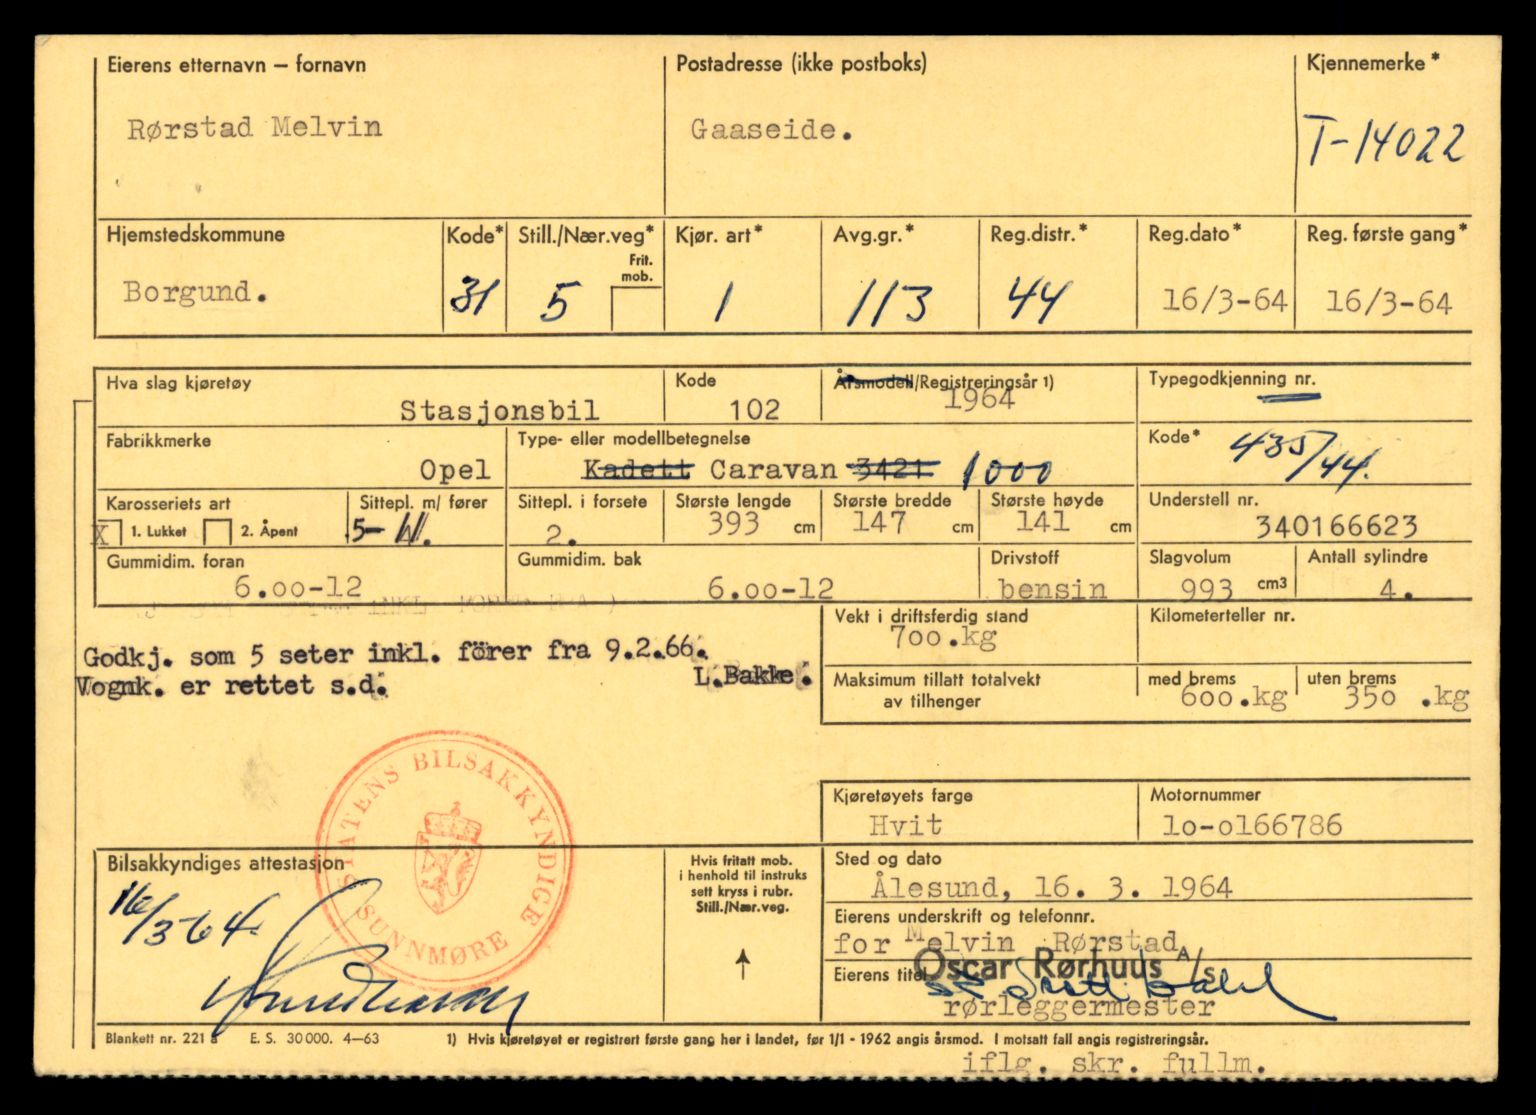 Eierens etternavn – fornavn Postadresse (ikke postboks) Kjennemerke*
Rørstad Melvin Gaaseide. T-14022
Hjemstedskommune Kode* Still./Nær.veg* Kjør. art* Avg.gr.* Reg.distr.* Reg.dato* Reg. første gang*
Frit. mob.
Borgund. 31 5 1 113 44 16/3-64 16/3-64
Hva slag kjøretøy Kode Årsmodell/Registreringsår 1) Typegodkjenning nr.
Stasjonsbil 102 1964
Fabrikkmerke Type- eller modellbetegnelse Kode*
Opel Kadett Caravan 3421 1000 435/44.
Karosseriets art Sittepl. m/ fører Sittepl. i forsete Største lengde Største bredde Største høyde Understell nr.
X 1. Lukket 2. Åpent 5- 2. 393 cm 147 cm 141 cm 340166623
Gummidim. foran Gummidim. bak Drivstoff Slagvolum Antall sylindre
6.00-12 6.00-12 bensin 993 cm3 4.
Vekt i driftsferdig stand Kilometerteller nr.
700.kg
Godkj. som 5 seter inkl. förer fra 9.2.66.
Vognk. er rettet s.d. L.Bakke.
Maksimum tillatt totalvekt av tilhenger med brems uten brems
600.kg 350 .kg
STATENS BILSAKKYNDIGE
SUNNMØRE
Kjøretøyets farge Motornummer
Hvit 10-0166786
Bilsakkyndiges attestasjon
16/3 64.
Hvis fritatt mob.
i henhold til instruks
sett kryss i rubr.
Still./Nær.veg.
Sted og dato
Ålesund, 16. 3. 1964
Eierens underskrift og telefonnr.
for Melvin Rørstad
Oscar Rørhuus A/s
Eierens titel
rørleggermester
Blankett nr. 221 a E. S. 30 000. 4–63 1) Hvis kjøretøyet er registrert første gang her i landet, før 1/1 - 1962 angis årsmod. I motsatt fall angis registreringsår.
iflg. skr. fullm.